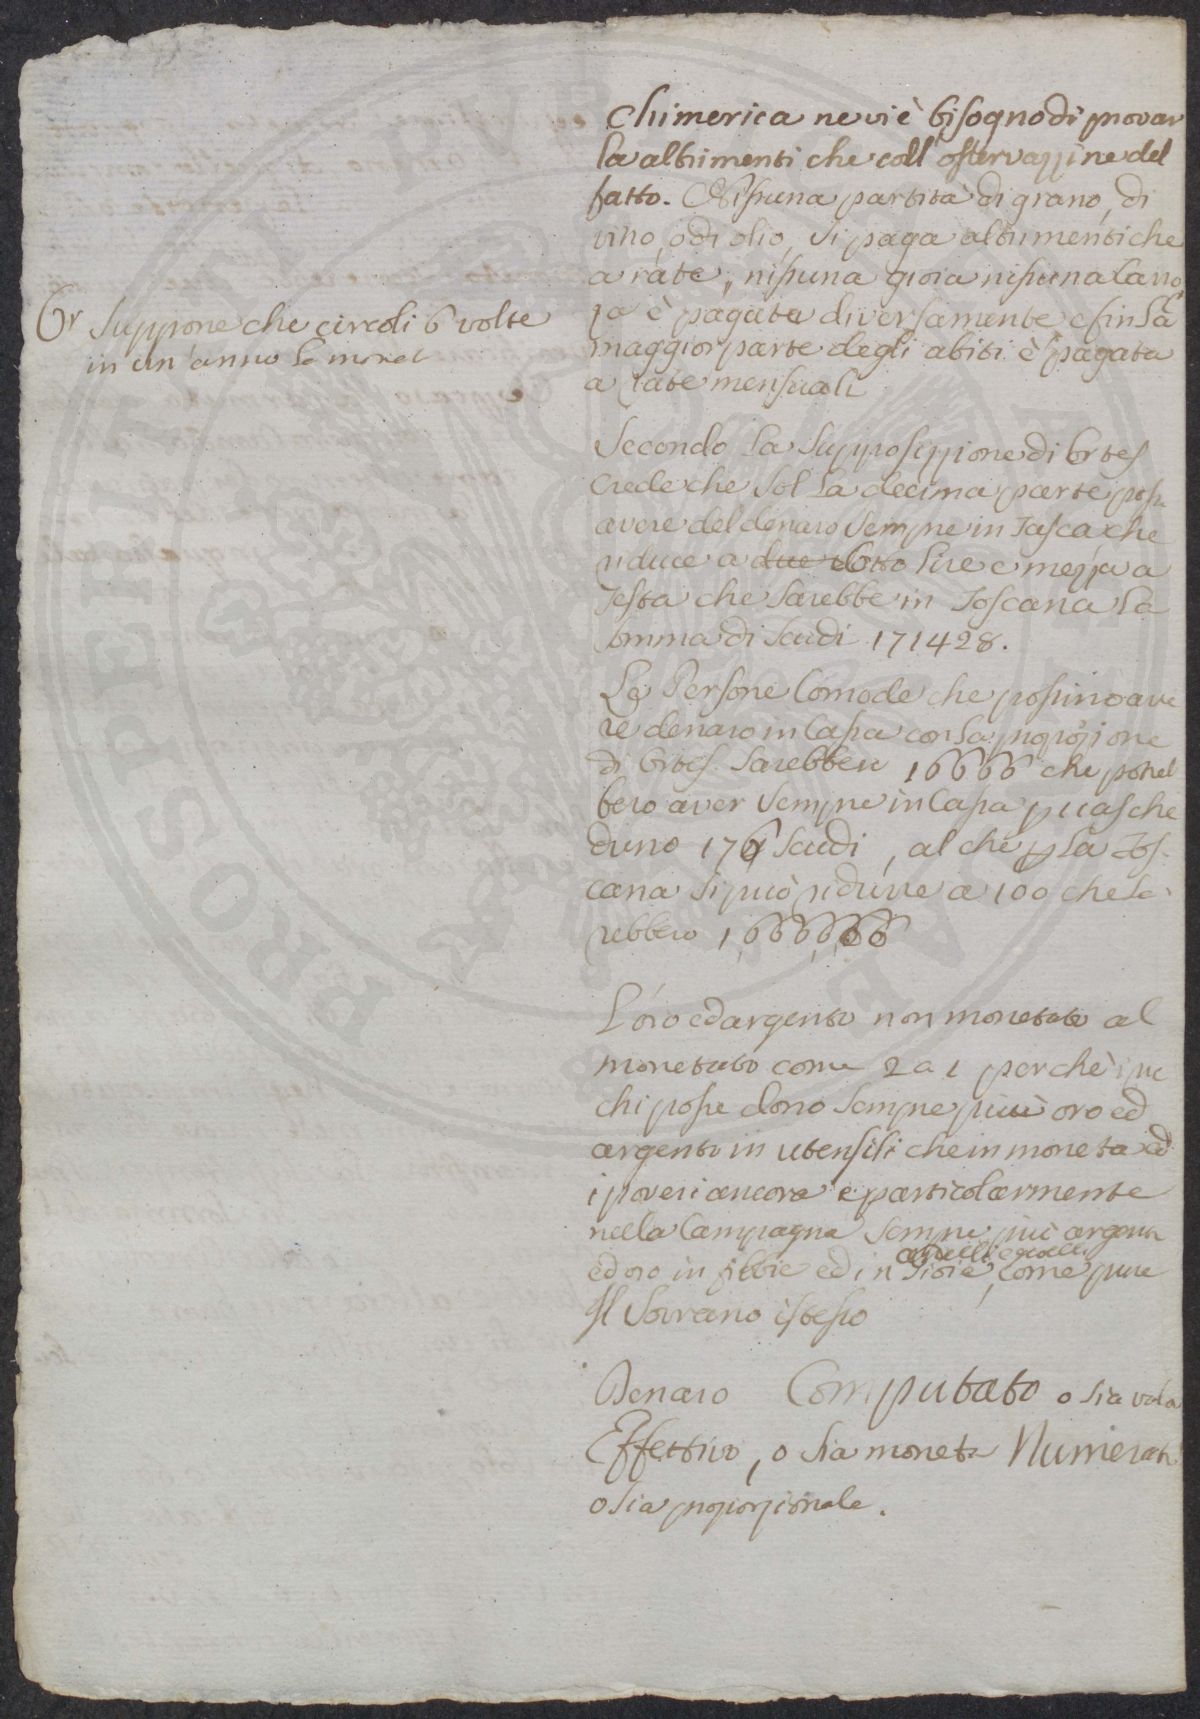 Chimerica ne vi è bisogno di provar
la altrimenti che coll' osservazzine del
fatto. Nissuna partita di grano, di
vino, o di olio, si paga altrimenti che
a rate, nissuna gioia nissuna
è pagata diversamente e fin la
maggior parte degli abiti è pagata
a rate mensuali
Or Suppone che circoli 6 volte
in un' anno la monet
Secondo la supposizzione di Ortes
Crede che sol la decima parte possa
avere del denaro sempre in Tasca che
riduce a due otto lire e mezza a
Testa che sarebbe in Toscana la
somma di scudi 171428.
Le Persone Comode che possino ave
re denaro in Casa con la proporzione
di Ortes sarebbero 16666 che potreb
bero aver sempre in Casa p ciasche
duno 176 scudi, al che p la Tos-
cana si può ridurre a 100 che sa-
rebbero 1,666,666
L'oro ed argento non monetato al
monetato come 2 a 1 perchè i ric
chi possedono sempre più oro ed
argento in utensili che in moneta ed
i poveri ancora e particolarmente
nella Campagna sempre più argento
ed oro in fibbie ed in anelli e gioelli Gioie, come pure
Il Sovrano istesso
Denaro Computato o sia valor
Effettivo, o sia moneta Numerata
o sia proporzionale.
PROSPERITATI PVBLICAE AVGENDAE